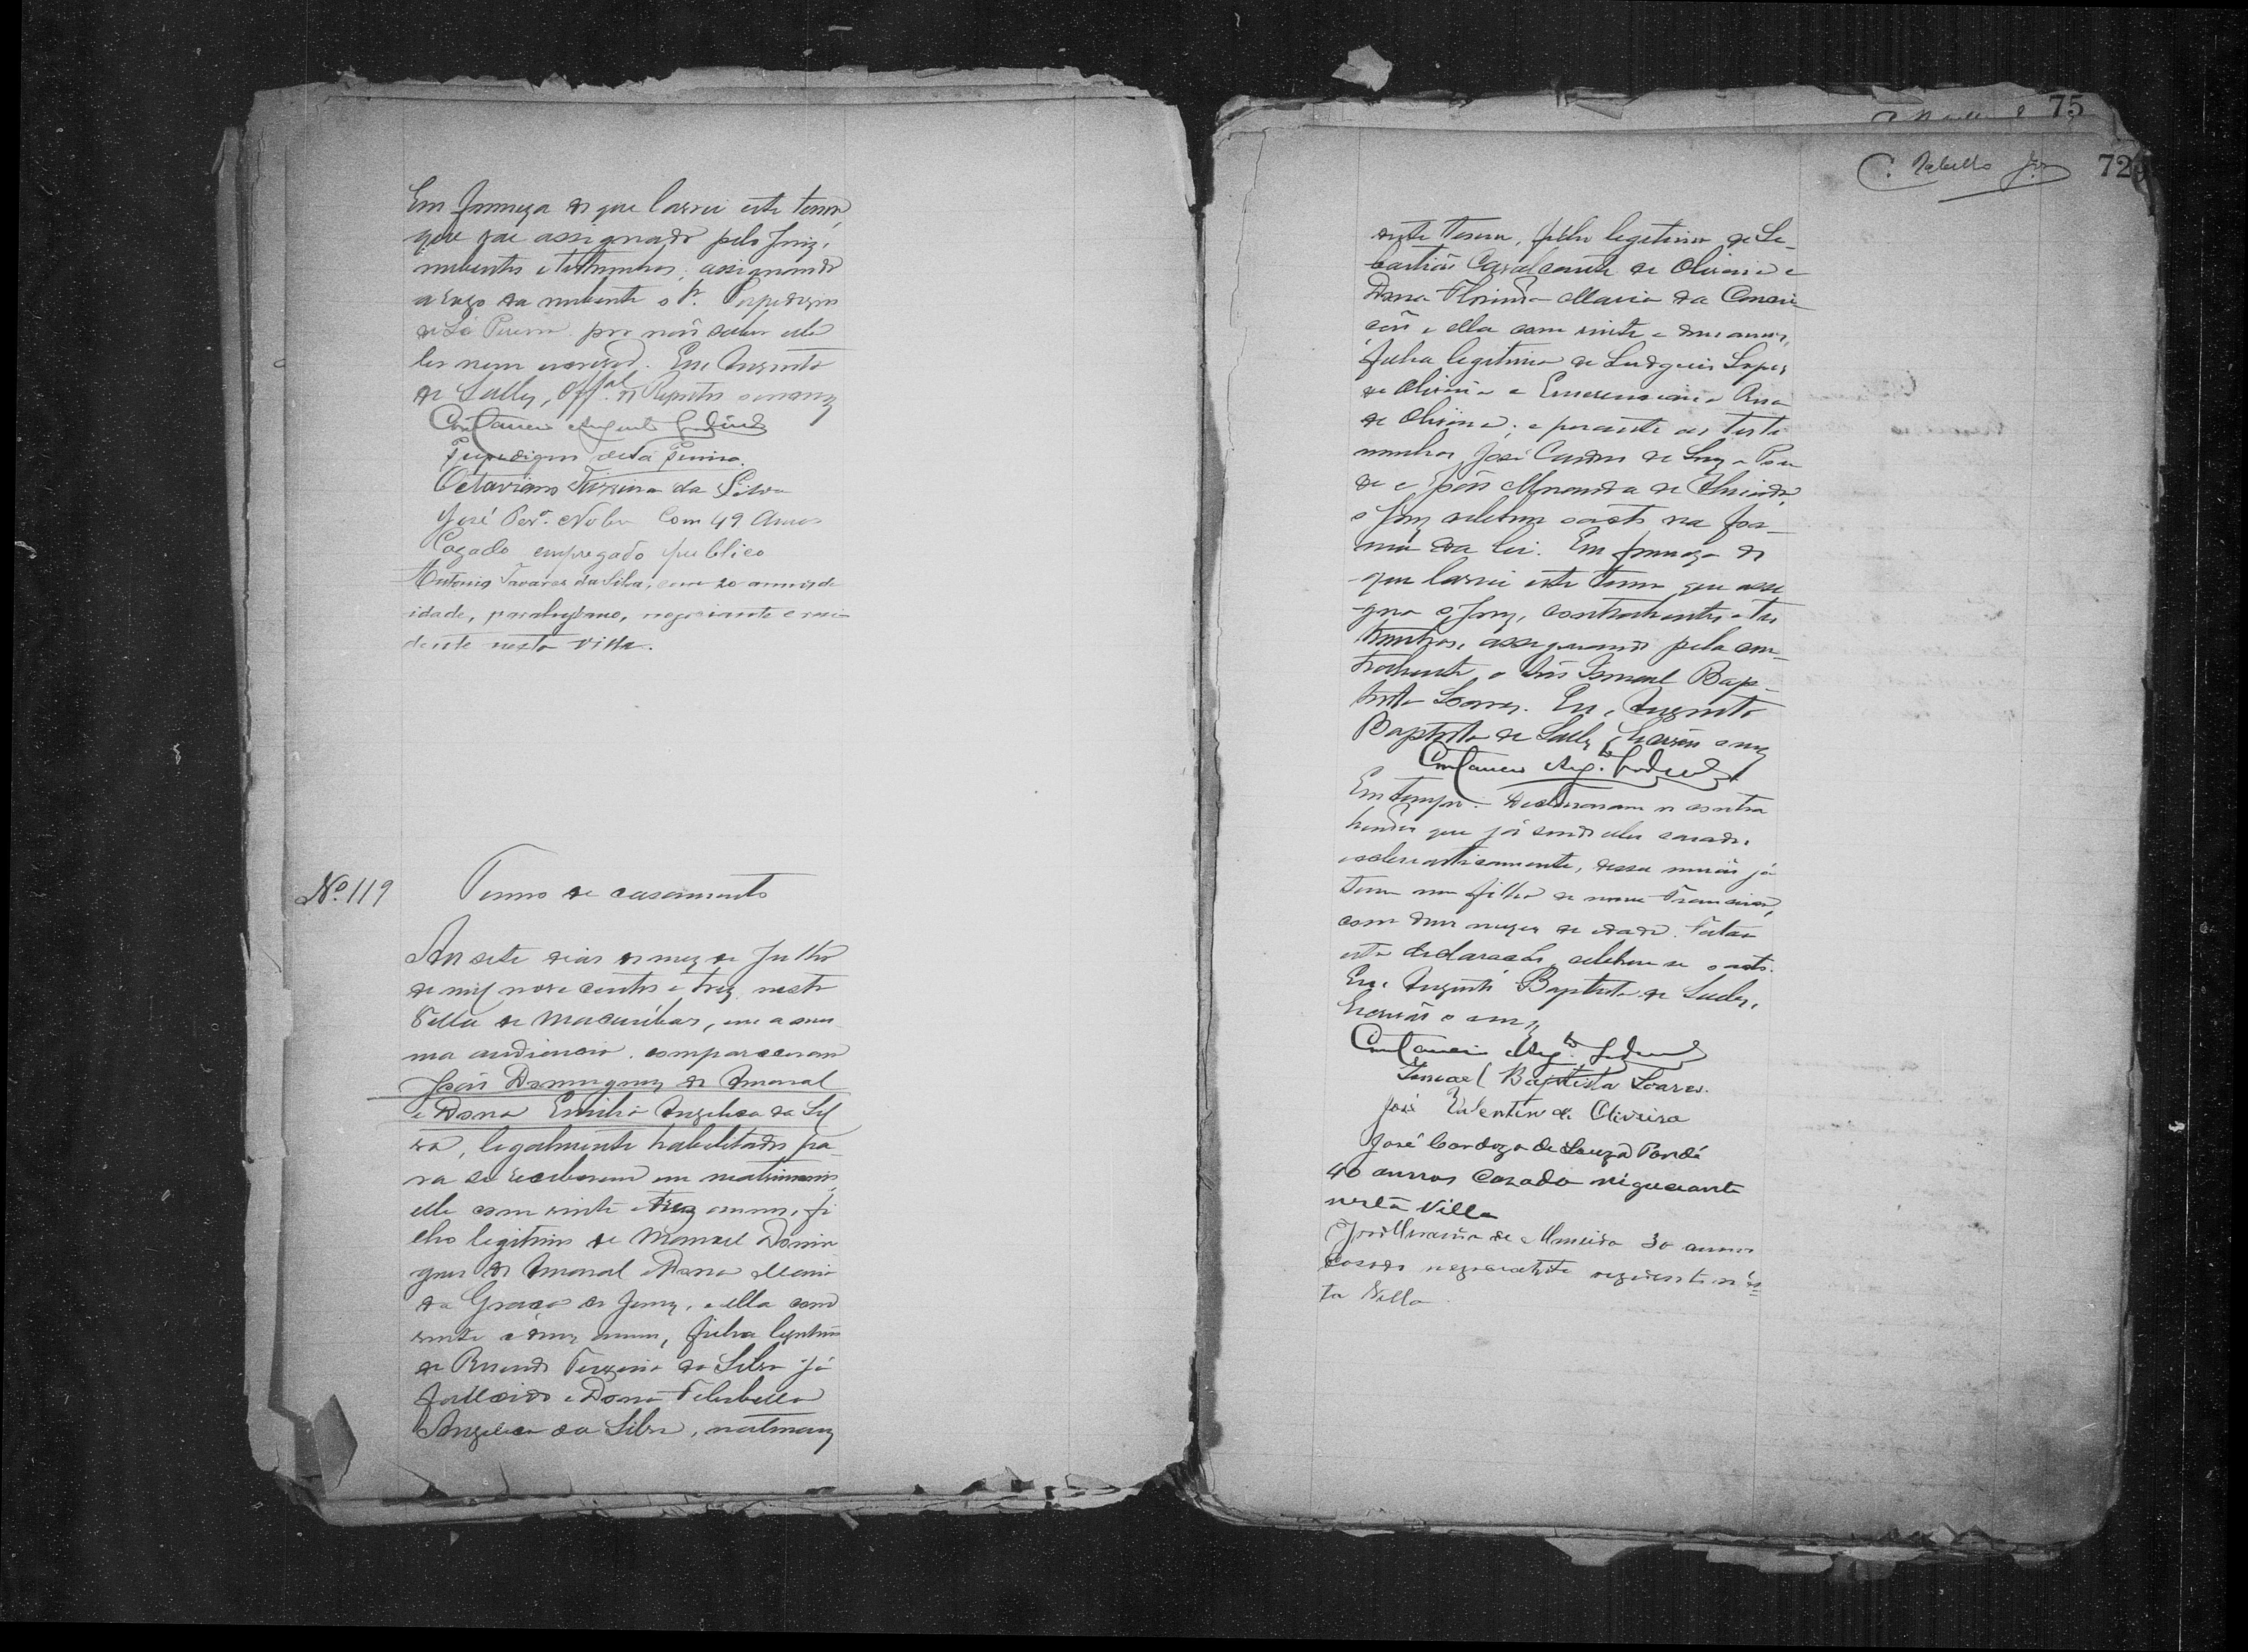 Em firmeza do que lavrei este termo,
que vae assignado pelo Juiz,
nubentes e testemunhas, assignando
a rogo da nubente o Sr. Perpedigno
de Sá Pereira por não saber ella
ler nem escrever. Eu Augusto
de Sally, Offal. do Registro o escrevy
Constancio Augusto
Perpedigno de Sá Pereira
Octaviano Ferreira da Silva
José Per.ª Nobre Com 49 Annos
Cazado empregado publico
Antonio Tavares da Silva, com 20 annos de
idade, parahybano, negociante e resi
dente nesta villa.
Nº 119
Termo de casamento
Aos sete dias do mez de Julho
de mil nove centos e trez nesta
Villa de Macahibas, em a mes
ma audiencia compareceram
João Domingues do Amaral
e Dona Emilia Angelica da Sil
va, legalmente habilitados pa
ra se receberem em matrimonio,
elle com vinte e trez annos, fi
lho legitimo de Manoel Domin
gues do Amaral e Dona Maria
da Graça de Jesus, e ella com
vinte e dous annos, filha legitima
de Ferreira da Silva já
fallecido e Dona Felisbella
Angelica da Silva, naturaes
C. Rabello Jor
75
72
deste termo, filho legitimo de Se-
bastião Cavalcante de Oliveira e
Dona Florinda Maria da Concei
ção e ella com vinte e dous annos,
filha legitima de Ludgerio Lopes
de Oliveira e Emerenciana Rosa
de Oliveira; e perante as teste
munhas José Cardoso de Souza Pon
de e João Miranda de Almeida,
o Juiz celebrou o acto na for-
ma da lei. Em firmeza do
que lavrei este termo que assi
gna o Juiz, contrahentes e tes
temunhas, assignando pela con-
trahente o Snr. Ismael Bap-
tista Soares. Eu, Augusto
Baptista de Sally, Escrivão o escrevy
Constancio Aug.to
Em tempo: Declararam os contra
hentes que já sendo elles casados
ecclesiasticamente, dessa união já
tem um filho de nome Francisco,
com dous mezes de edade. Feita
esta declaração, celebrou-se o acto.
Eu, Augusto Baptista de Sally,
Escrivão o escrevy
Constancio Aug.to
Ismael Baptista Soares.
José Valentin de Oliveira
José Cardozo de Souza Pondé
40 annos Cazado negociante
nesta Villa
João Miranda de Almeida 30 annos
casado negociante rezidente nes=
ta Villa